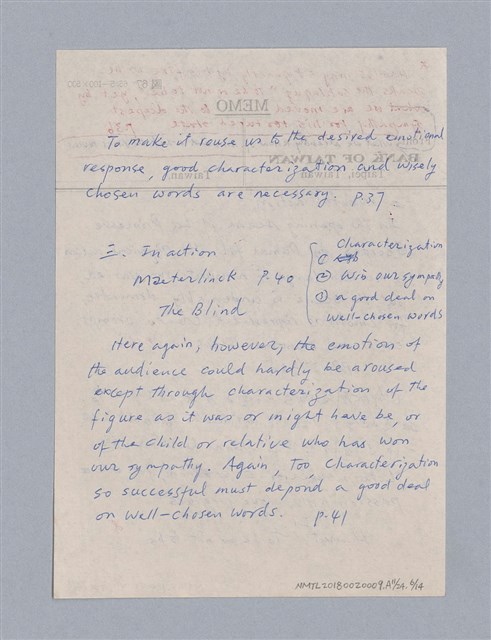 MEMO
BANK OF TAIWAN
To make it rouse us to the desired emotional
response, good characterization and wisely
chosen words are necessary. P.37
三. In action
Maeterlinck P.40
The Blind
Characterization
② Win our sympathy
③ a good deal on
well-chosen words
Here again, however, the emotion of
the audience could hardly be aroused
except through characterization of the
figure as it was or might have be, or
of the child or relative who has won
our sympathy. Again, too, characterization
so successful must depend a good deal
on well-chosen words. p.41
NMTL20180020009.A